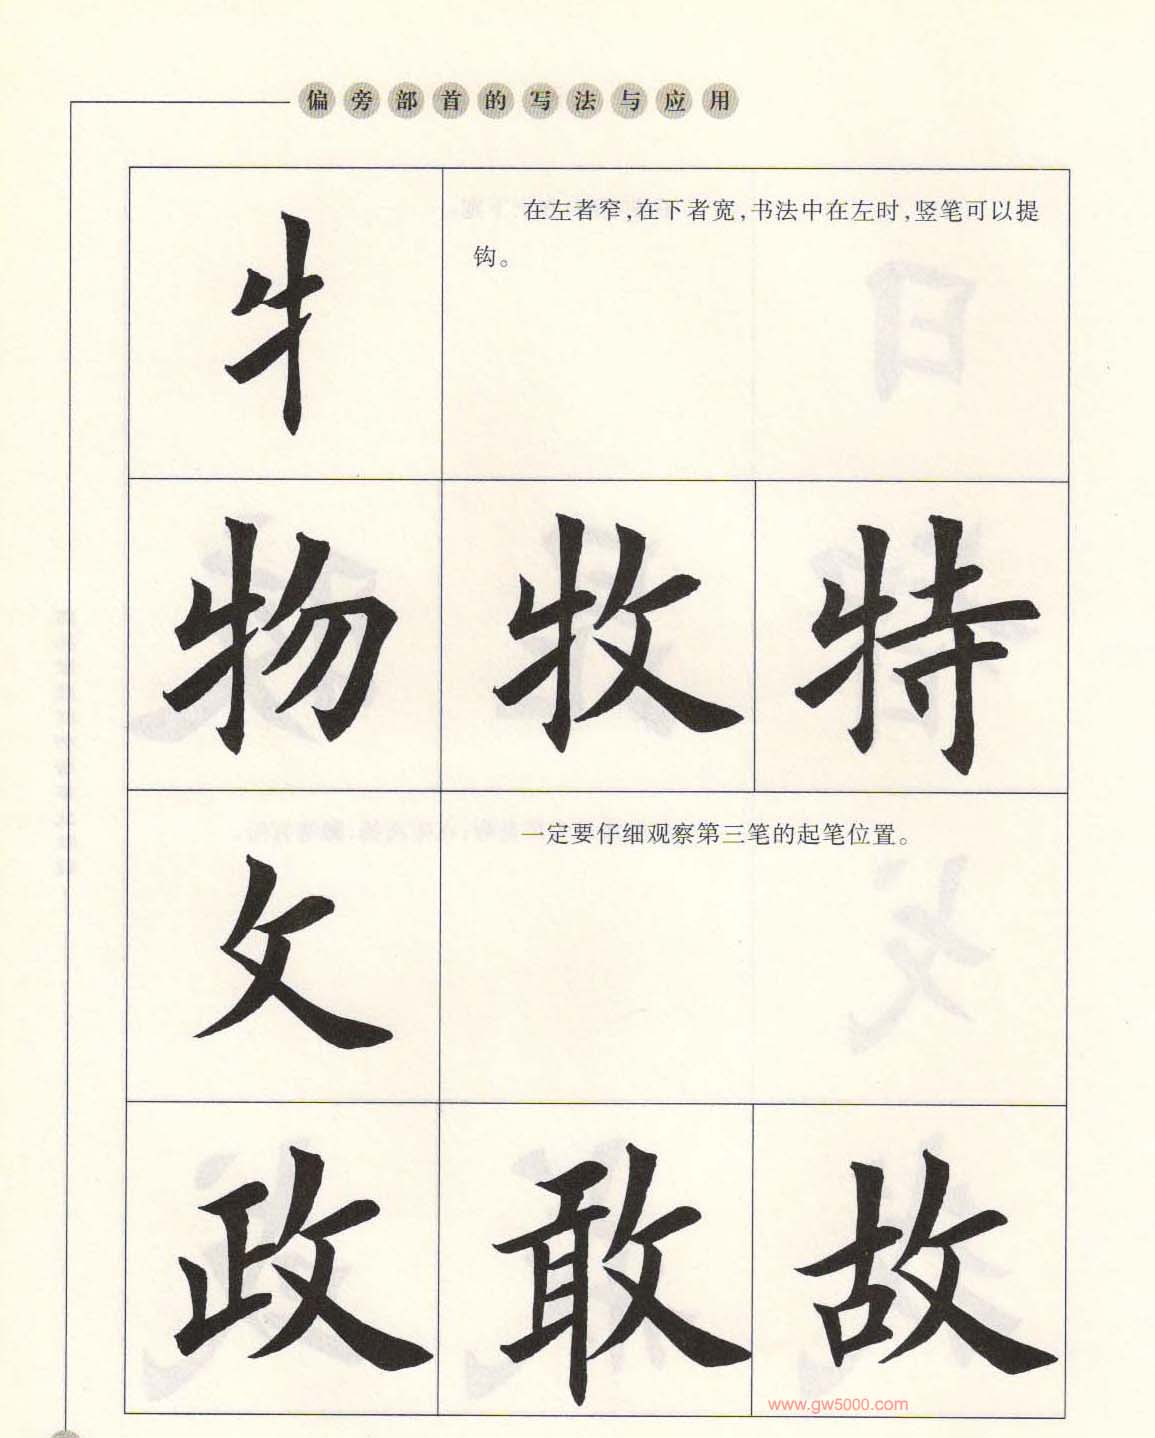 偏旁部首的写法与应用
牜
在左者窄,在下者宽,书法中在左时,竖笔可以提
钩。
物 牧 特
攵
一定要仔细观察第三笔的起笔位置。
政 敢 故
www.gw5000.com